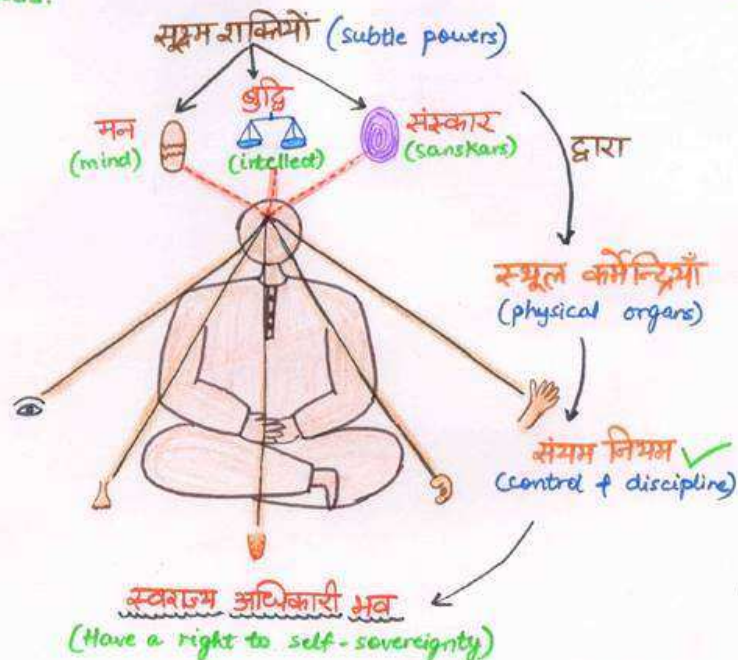 सूक्ष्म शक्तियों (subtle powers)
बुद्धि
(intellect)
मन
(mind)
संस्कार
(sanskars)
द्वारा
स्थूल कर्मेन्द्रियाँ
(physical organs)
संयम नियम ✓
(control & discipline)
स्वराज्य अधिकारी भव
(Have a right to self-sovereignty)